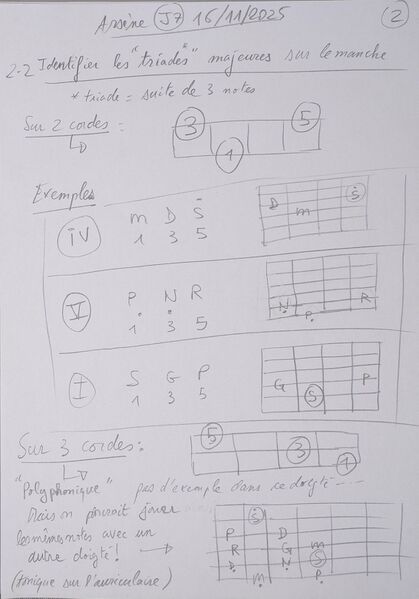 Arsène J7 16/11/2025 2
2-2 Identifier les "triades" majeures sur le manche
* triade = suite de 3 notes
Sur 2 cordes :
3 5
1
Exemples
IV m D Ṡ
1 3 5
D m Ṡ
V P N R
1 3 5
N P R
I S G P
1 3 5
G S P
Sur 3 cordes :
5
3
1
"Polyphonique" pas d'exemple dans ce doigté ----
Mais on pourrait jouer
les mêmes notes avec un
autre doigté !
(tonique sur l'auriculaire)
Ṡ
P D
R G m
D N S
m P